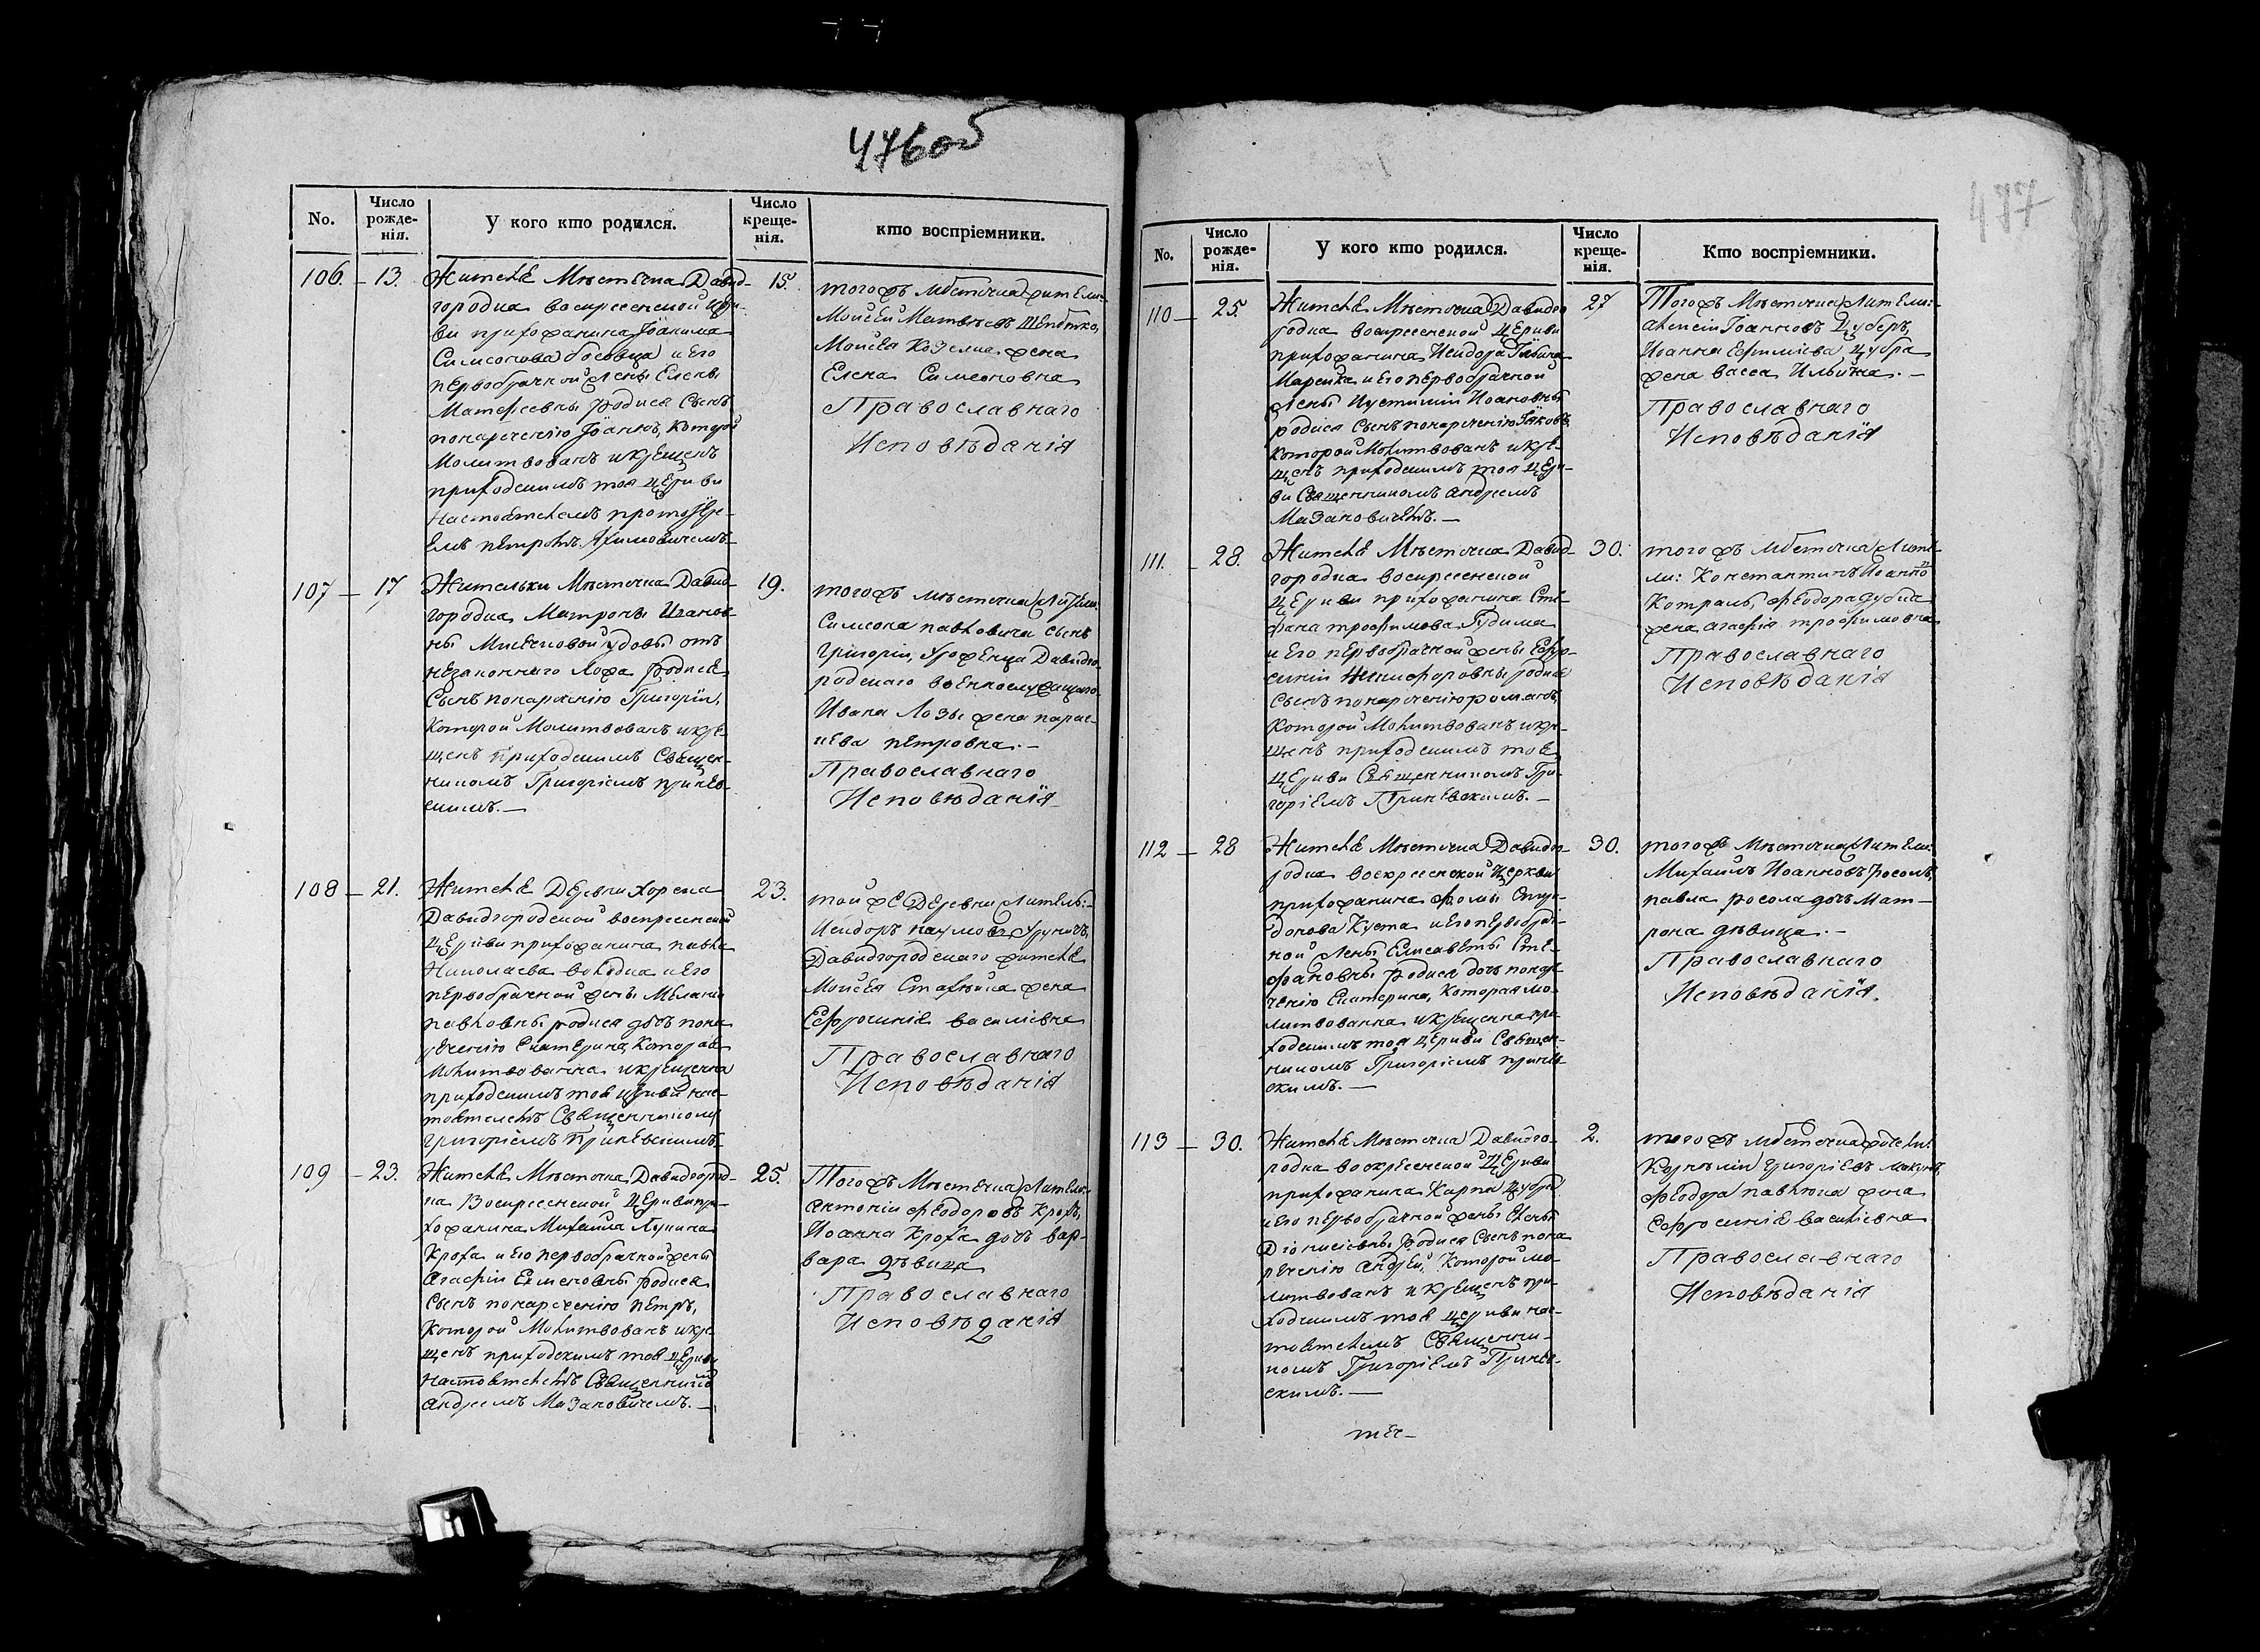 476об
No.
Число рожде-нія.
У кого кто родился.
Число креще-нія.
кто воспріемники.
106. 13. Жителя Мѣстечка Давид-
городка воскресенской церк-
ви прихожанина Іоакима
Симеонова и его
первобрачной жены Елены
Матфеевны родися сынъ
понареченію Іоаннъ, которой
молитвованъ и крещенъ
приходскимъ тоя церкви
настоятелемъ протоіере-
емъ Петромъ
15.
тогожъ мѣстечка жители:
Моисей Матвѣевъ
Моисея Козела жена
Елена Симеоновна
Православнаго
Исповѣданія
107 17 Жительки Мѣстечка Давид-
городка Матроны Иванов-
ны вдовы отъ
незаконнаго ложа родися
сынъ понареченію Григорій,
которой молитвованъ и кре-
щенъ приходскимъ Священ-
никомъ Григоріемъ Принев-
скимъ.—
19.
тогожъ мѣстечка жители:
Симеона Павловича сынъ
Григорій, уроженца Давидго-
родскаго военнослужащаго
Ивана Лозы жена Парас-
кева Петровна.—
Православнаго
Исповѣданія
108 21. Жителя Деревни Хорска
Давидгородской воскресенской
церкви прихожанина Павла
Николаева и его
первобрачной жены Меланіи
Павловны родися дочь пона-
реченію Екатерина, которая
молитвованна и крещенна
приходскимъ тоя церкви нас-
тоятелемъ Священникомъ
Григоріемъ Приневскимъ
23.
той же Деревни житель:
Исидоръ Наумовъ
Давидгородскаго жителя
Моисея жена
Ефросинія Василіевна
Православнаго
Исповѣданія
109 23. Жителя Мѣстечка Давидгород-
ка Воскресенской Церкви при-
хожанина Михаила Лукина
Кроха и его первобрачной жены
Агафіи родися
сынъ понареченію Петръ,
которой молитвованъ и кре-
щенъ приходскимъ тоя церкви
настоятелемъ Священникомъ
Андреемъ Мазановичемъ.—
25.
Тогожъ Мѣстечка жители:
Антоній Феодоровъ Крохъ,
Иоанна Кроха дочь Вар-
вара дѣвица
Православнаго
Исповѣданія
477
No.
Число рожде-нія.
У кого кто родился.
Число креще-нія.
Кто воспріемники.
110 25. Жителя Мѣстечка Давидго-
родка воскресенской церкви
прихожанина Исидора
Марейка и его первобрачной
жены Иустиніи Иоановны
родися сынъ понареченію Іаковъ,
которой молитвованъ и кре-
щенъ приходскимъ тоя церк-
ви Священникомъ Андреемъ
Мазановичемъ.—
27
Тогожъ Мѣстечка жители:
Алексій Іоанновъ Цуберъ,
Иоанна Ефиміева Цубра
жена Васса Ильична.—
Православнаго
Исповѣданія
111. 28. Жителя Мѣстечка Давид-
городка воскресенской
церкви прихожанина Сте-
фана Трофимова Гудима
и его первобрачной жены Евфро-
синіи Никифоровны родися
сынъ понареченію Романъ,
которой молитвованъ и кре-
щенъ приходскимъ тоя
церкви Священникомъ Гри-
горіемъ Приневскимъ.—
30.
тогожъ мѣстечка жите-
ли: Константинъ
Феодора
жена Агафія Трофимовна
Православнаго
Исповѣданія
112 28 Жителя Мѣстечка Давидго-
родка воскресенской церкви
прихожанина Фомы Спири-
донова Куста и его первобрач-
ной жены Елисаветы Сте-
фановны родися дочь понаре-
ченію Екатерина, которая мо-
литвованна и крещенна при-
ходскимъ тоя церкви Священ-
никомъ Григоріемъ Принев-
скимъ.—
30.
тогожъ Мѣстечка жители:
Михаилъ Иоанновъ Росолъ,
Павла Росола дочь Мат-
рона дѣвица.—
Православнаго
Исповѣданія.
113 30. Жителя Мѣстечка Давидго-
родка воскресенской Церкви
прихожанина Карпа Цубра
и его первобрачной жены Елены
Діонисіевны родися сынъ пона-
реченію Андрей, которой мо-
литвованъ и крещенъ при-
ходскимъ тоя церкви нас-
тоятелемъ Священни-
комъ Григоріемъ Принев-
скимъ.—
2.
тогожъ мѣстечка жители:
Корнилій Григоріевъ
Феодора жена
Ефросинія Василіевна
Православнаго
Исповѣданія